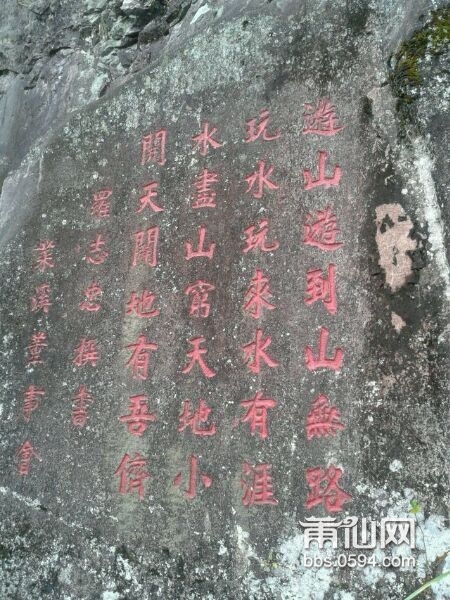 遊山遊到山無路
玩水玩來水有涯
水盡山窮天地小
開天開地有吾儕
羅志忠撰書
葉溪董事會
莆仙网
bbs.0594.com